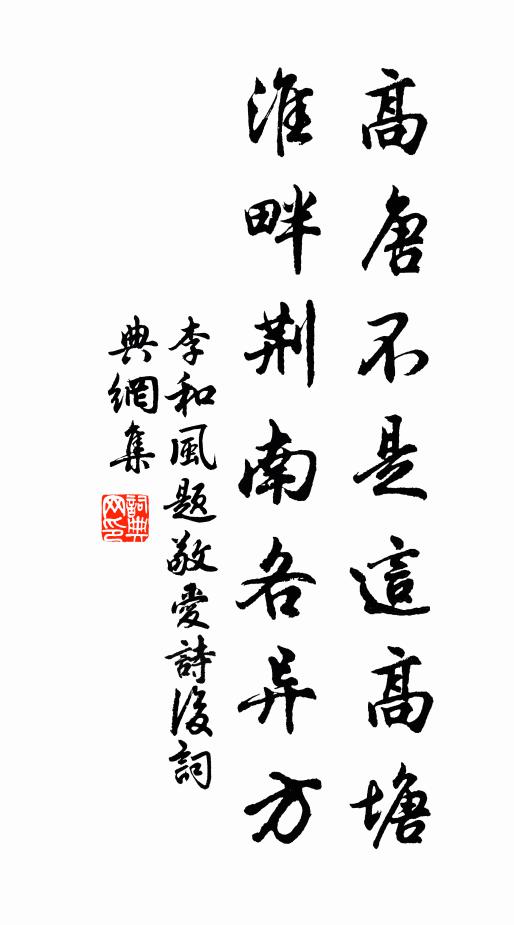 高唐不是這高塘
淮畔荆南各异方
李和風题敬愛詩後詞
典網集
詞典网印